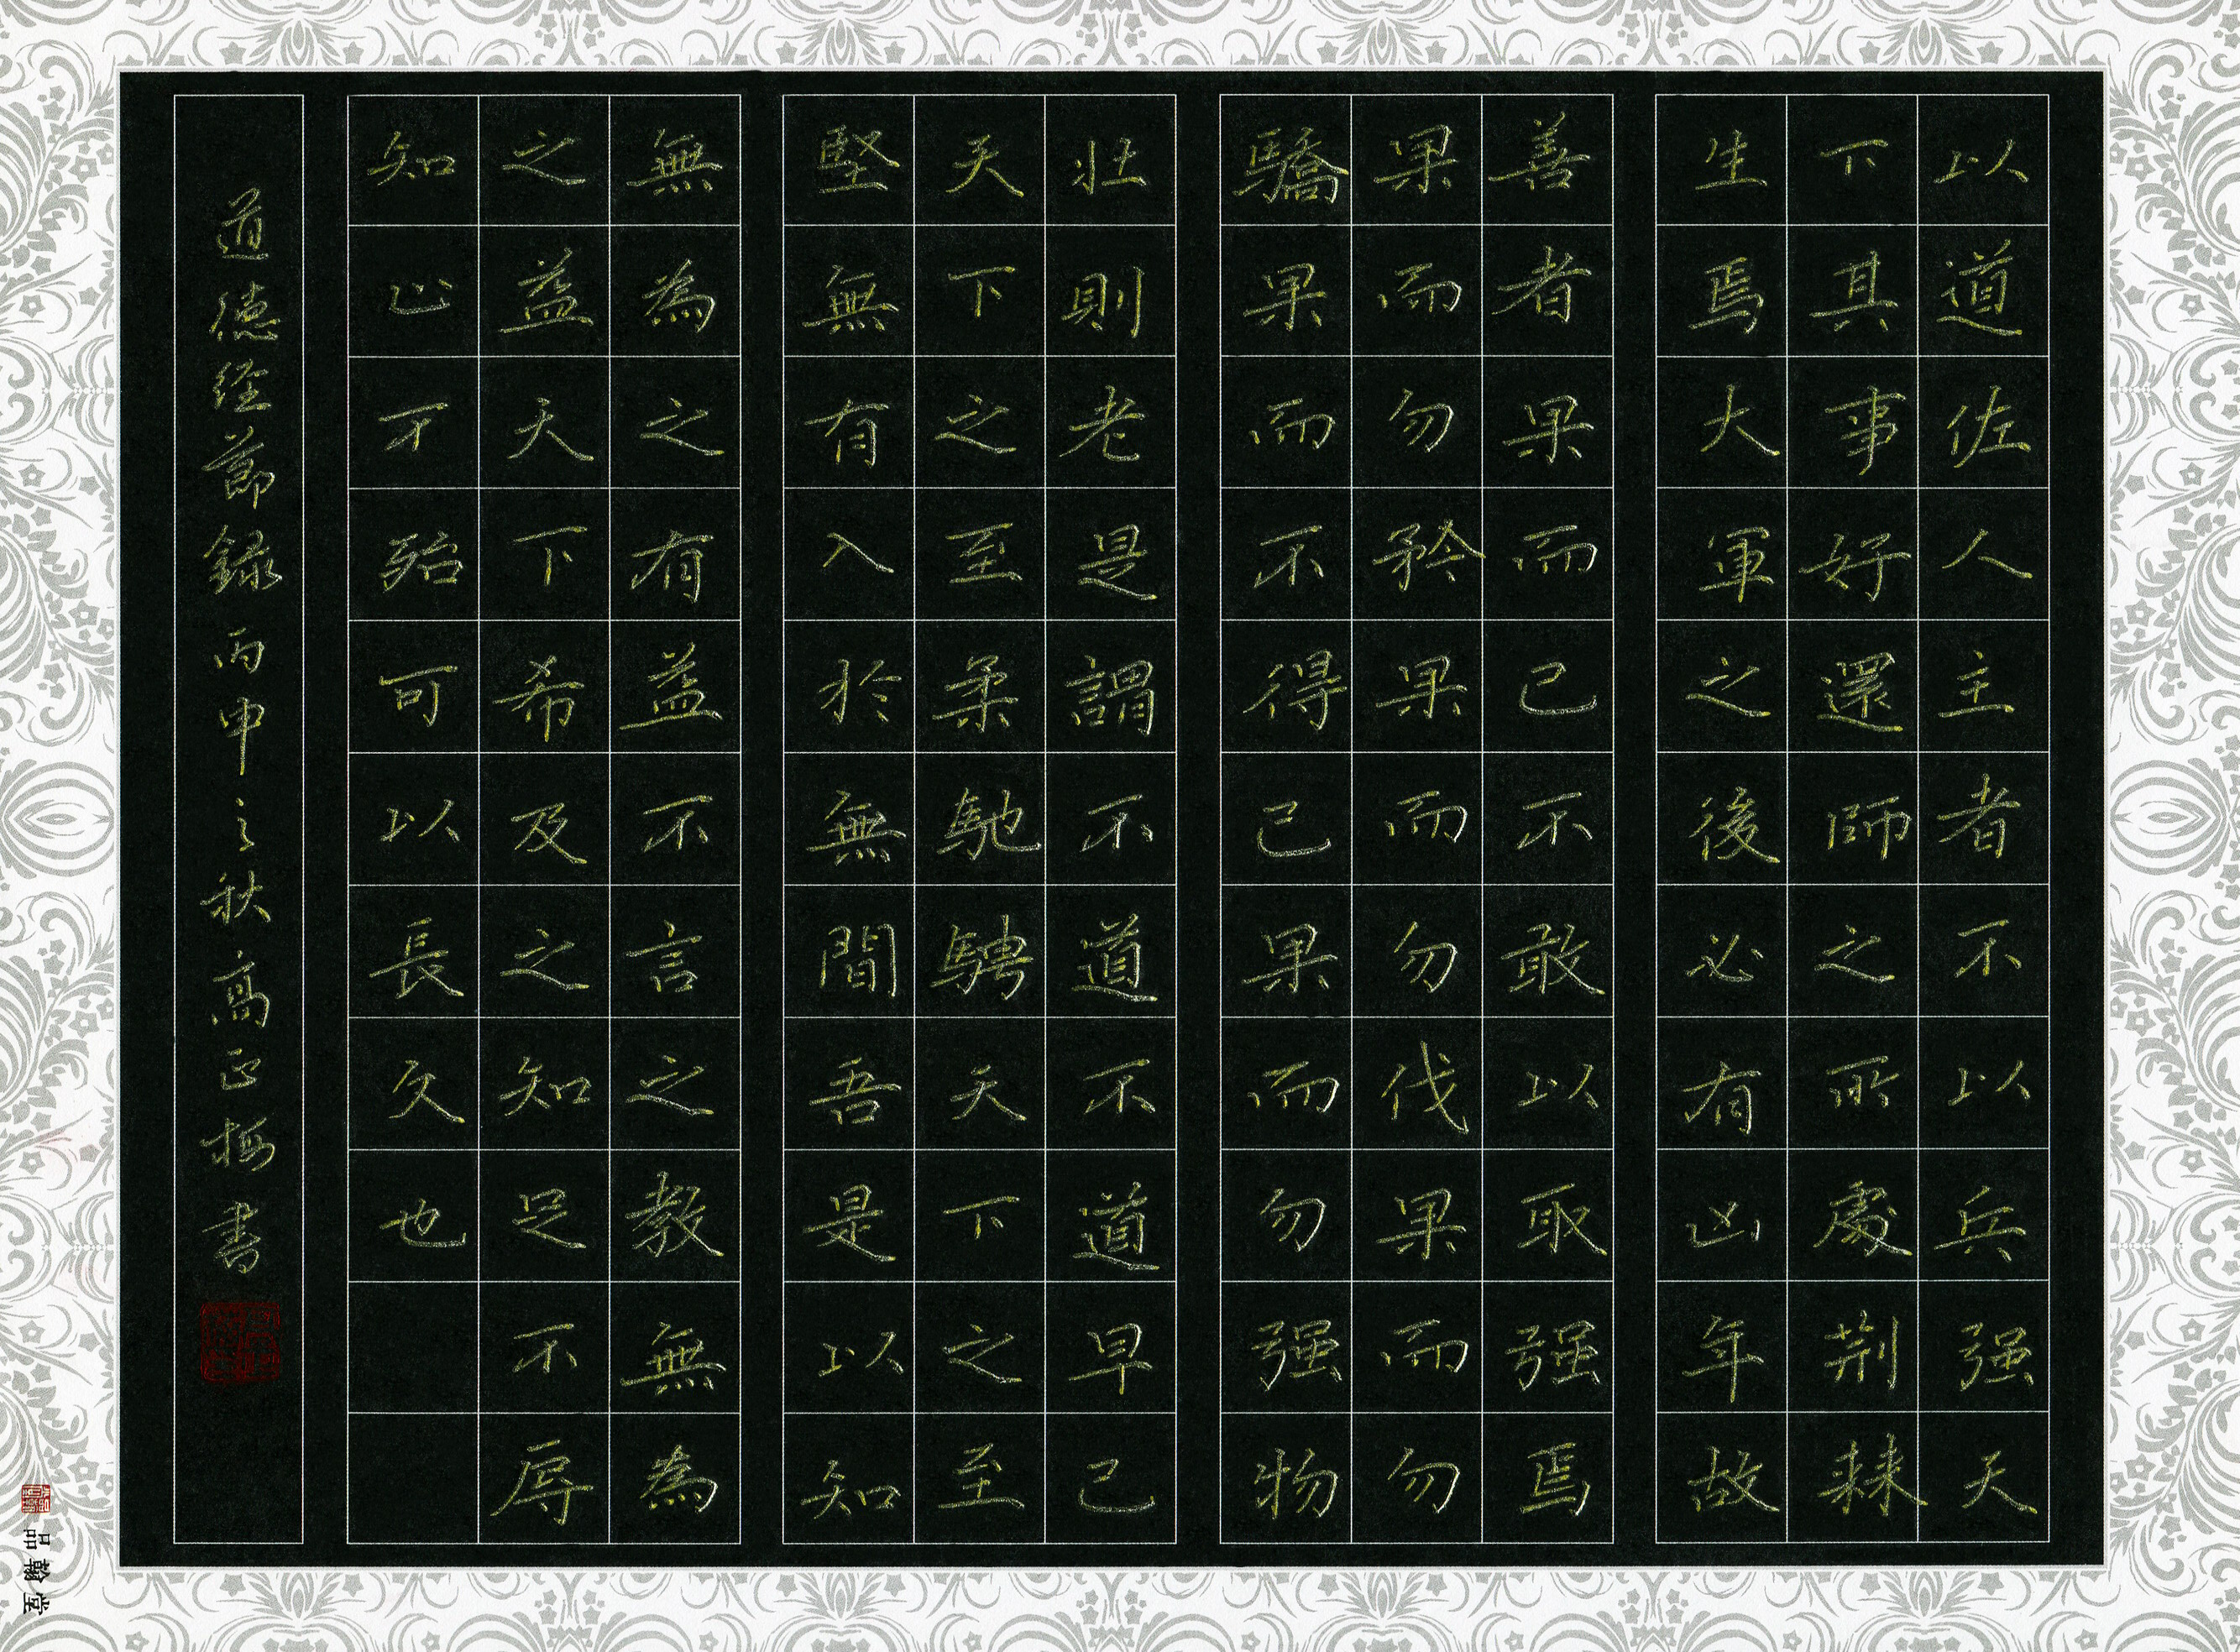 以道佐人主者不以兵强天
下其事好還師之所處荆棘
生焉大軍之後必有凶年故
善者果而已不敢以取强焉
果而勿矜果而勿伐果而勿
驕果而不得已果而勿强物
壯則老是謂不道不道早已
天下之至柔馳騁天下之至
堅無有入於無間吾是以知
無為之有益不言之教無為
之益天下希及之知足不辱
知止不殆可以長久也
道德經節録 丙申之秋 高正梅書
品翰堂